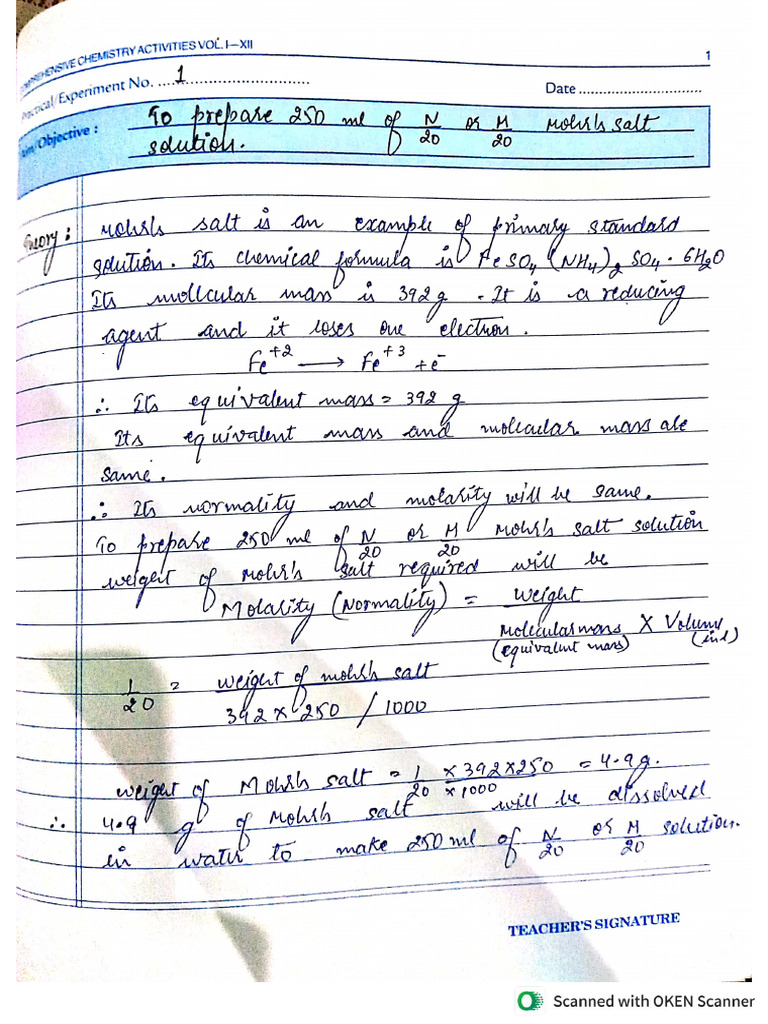 OMPREHENSIVE CHEMISTRY ACTIVITIES VOL. I—XII
1
Practical/Experiment No. ..... 1 ............................
Date ...............................
Aim/Objective :
To prepare 250 ml of N/20 or M/20 Mohr's salt
solution.
Theory :
Mohr's salt is an example of primary standard
solution. Its chemical formula is FeSO₄(NH₄)₂SO₄·6H₂O
Its molecular mass is 392 g. It is a reducing
agent and it loses one electron.
Fe⁺² ⟶ Fe⁺³ + e⁻
∴ Its equivalent mass = 392 g
Its equivalent mass and molecular mass are
same.
∴ Its normality and molarity will be same.
To prepare 250 ml of N/20 or M/20 Mohr's salt solution
weight of Mohr's salt required will be
Molarity (Normality) = weight
Molecular mass X Volume
(equivalent mass) (in l)
1/20 = weight of mohr's salt
392 × 250 / 1000
weight of Mohr's salt = 1/20 × 392×250 / ×1000 = 4.9g.
∴ 4.9 g of Mohr's salt will be dissolved
in water to make 250 ml of N/20 or M/20 solution.
TEACHER'S SIGNATURE
Scanned with OKEN Scanner